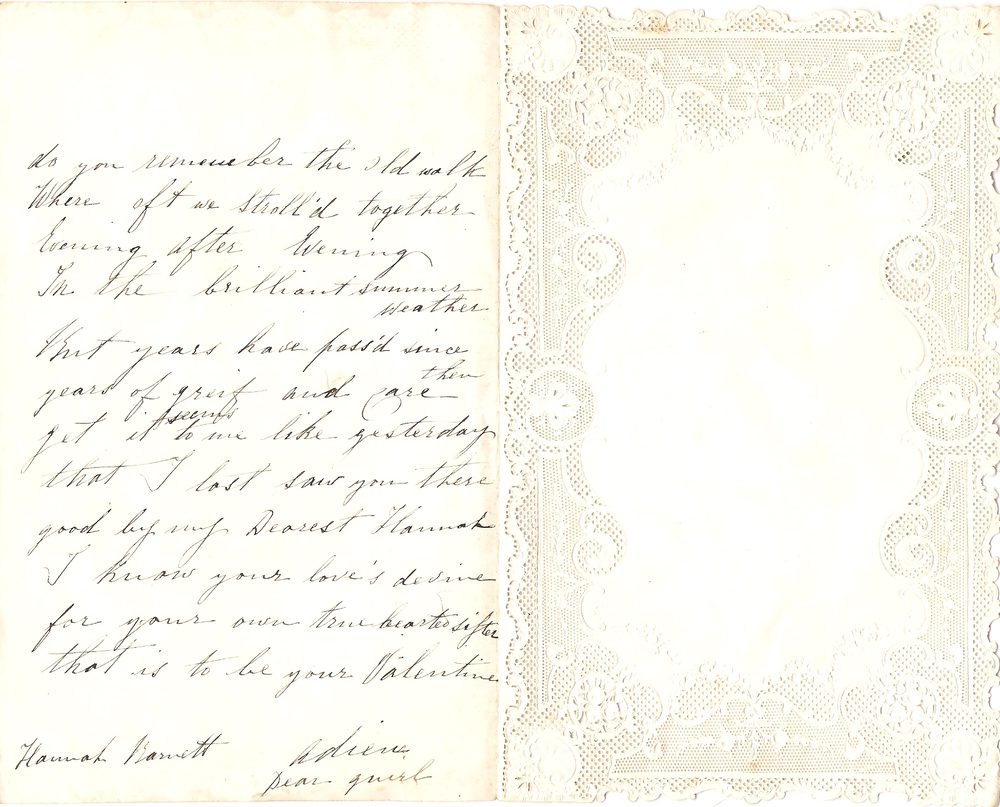 do you remember the old walk
Where oft we stroll'd together
Evening after Evening
In the brilliant summer
weather
But years have pass'd since
then
years of greif and care
yet it seems to me like yesterday
that I last saw you there
good by my Dearest Hannah
I know your love's devine
for your own true hearted sister
that is to be your Valentine
Hannah Barnett
Adieu
Dear guirl